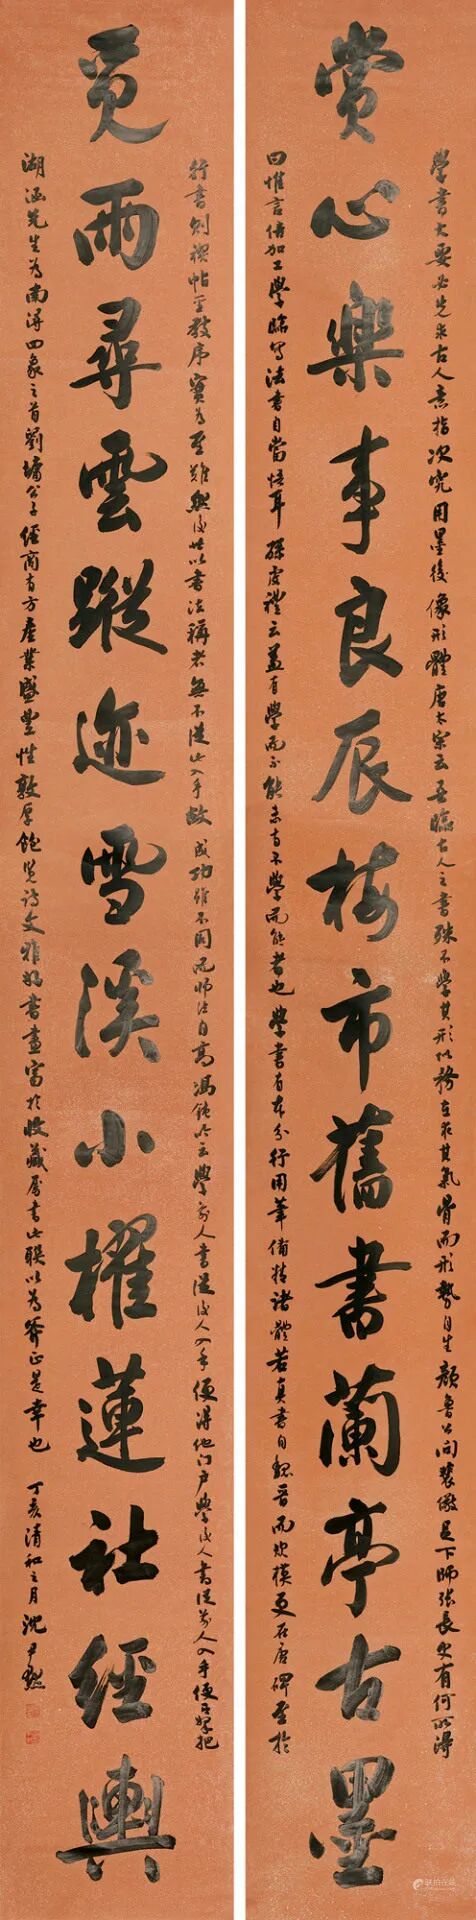 學書大要必先求古人意指次究用墨後像形體唐太宗云吾臨古人之書殊不學其形似務在求其氣骨而形勢自生顏魯公問裴儆足下師張長史有何所得
賞心樂事良辰梅市舊書蘭亭古墨
曰惟言倍加工學臨寫法書自當悟耳孫虔禮云蓋有學而不能未有不學而能者也學書有本分行用筆備精諸體若真書自魏晉而歐模更在唐碑至於
行書則禊帖聖教序實為至難然後世以書法稱者無不從此入手故成功雖不同而師法自高馮鈍吟云學前人書從後人入手便得他門戶學後人書從前人入手便有把
覓雨尋雲蹤迹雪溪小櫂蓮社經輿
湖涵先生為南潯四象之首劉墉公子經商有方產業盛豐性敦厚飽覽詩文雅好書畫富於收藏屬書此聯以為斧正是幸也 丁亥清和之月沈尹默